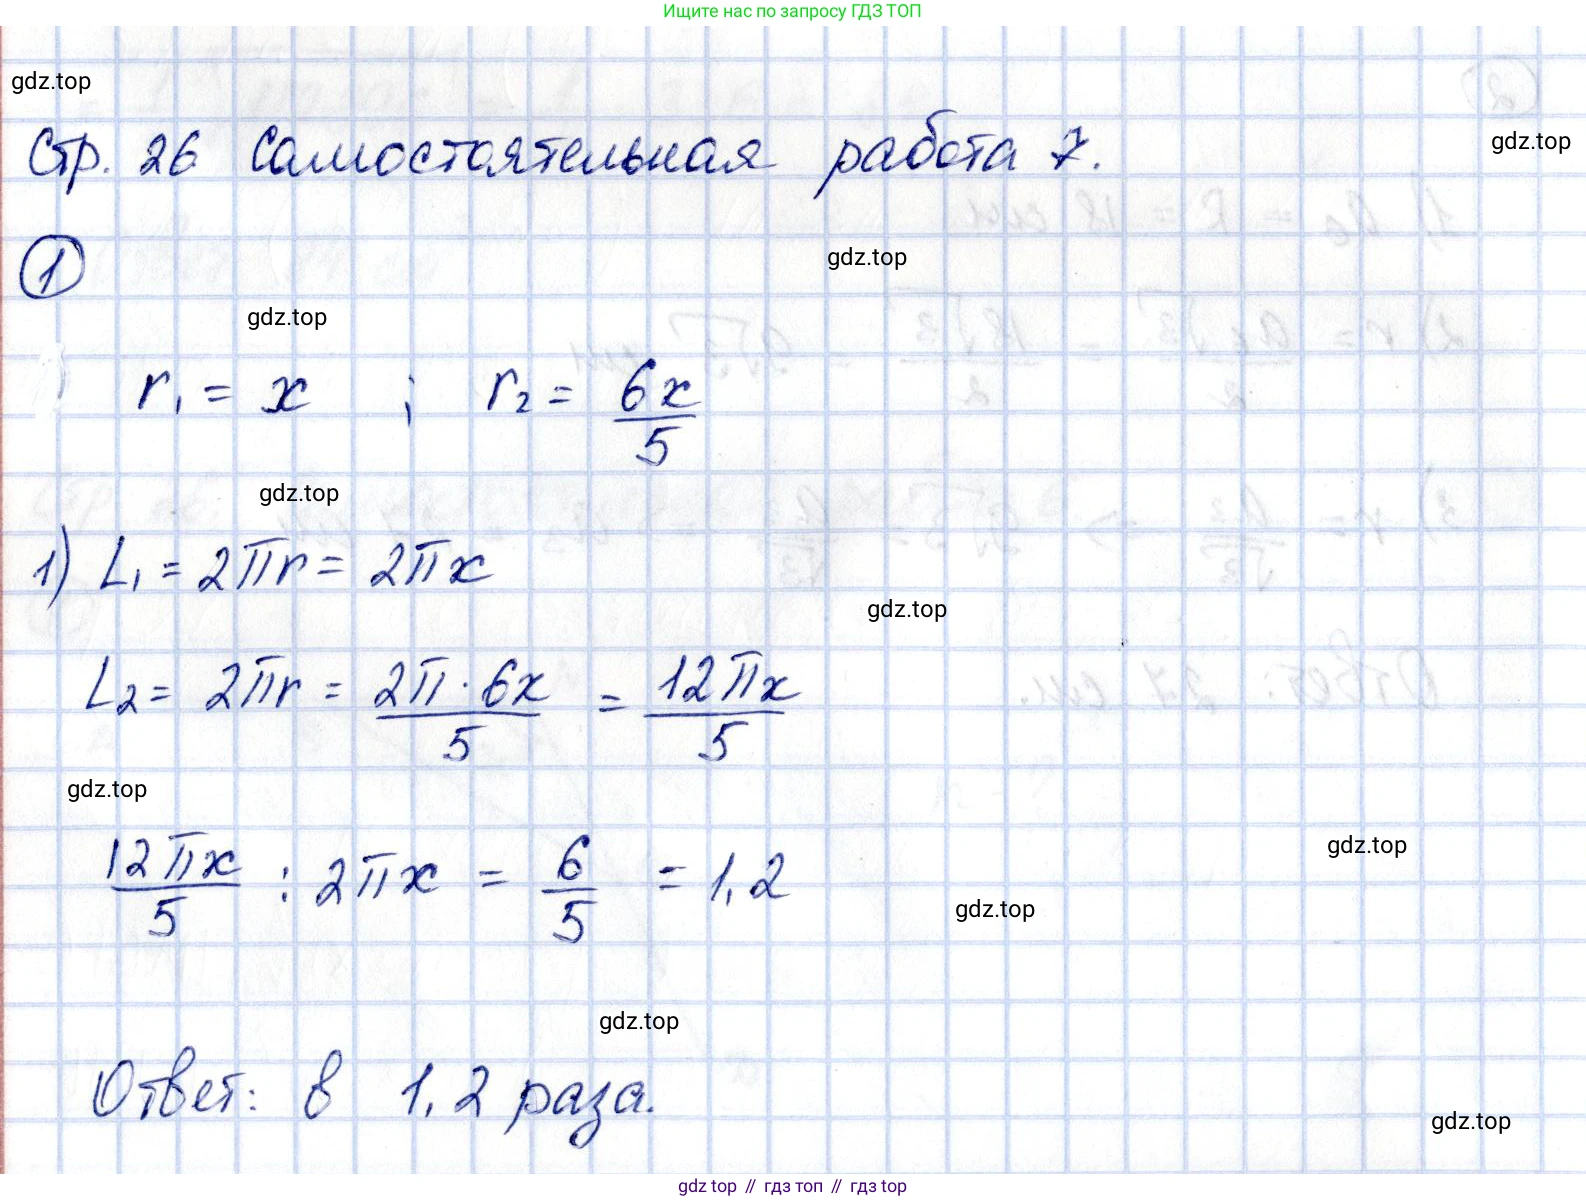 Ищите нас по запросу ГДЗ ТОП
gdz.top
Стр. 26 Самостоятельная работа 7.
gdz.top
1
gdz.top
gdz.top
r₁ = x ; r₂ = 6x/5
gdz.top
1) L₁ = 2πr = 2πx
gdz.top
L₂ = 2πr = 2π · 6x/5 = 12πx/5
gdz.top
12πx/5 : 2πx = 6/5 = 1,2
gdz.top
gdz.top
gdz.top
Ответ: в 1,2 раза.
gdz.top
gdz top // гдз топ // gdz top